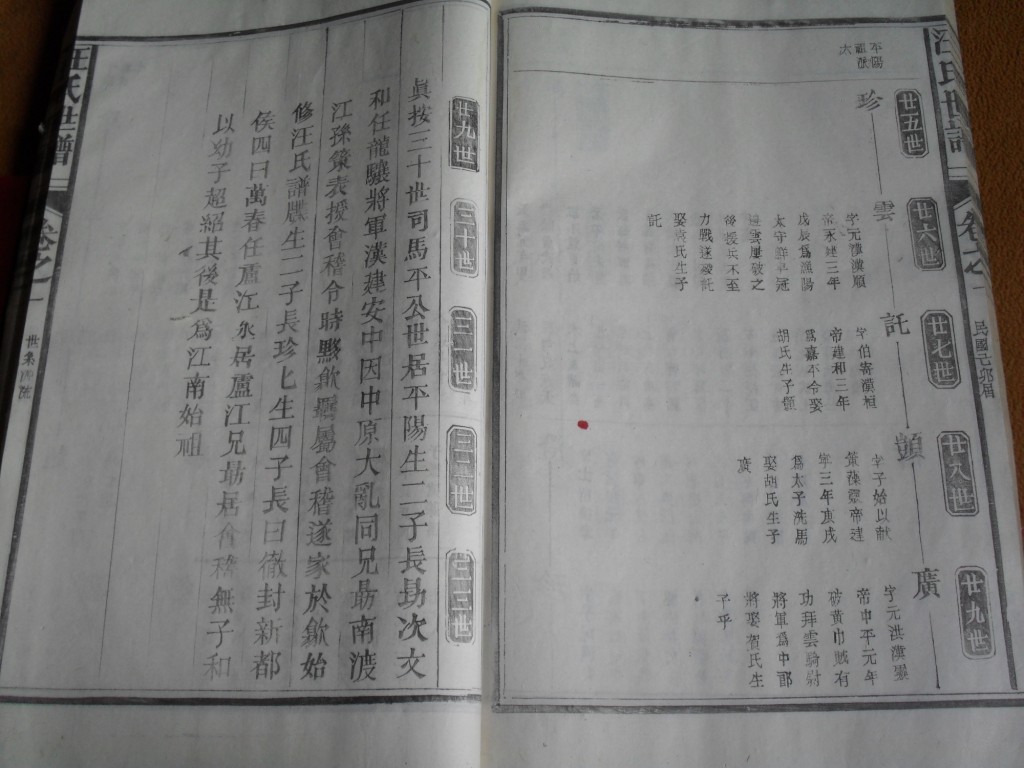 汪氏世譜
卷之一
民國己卯修
平陽
霸
六
廿五世
廿六世
廿七世
廿八世
廿九世
珍
雲
字元偉漢順
帝永建三年
戊辰為漁陽
太守鮮卑冠
邊雲屢破之
後援兵不至
力戰遂歿託
娶袁氏生子
託
託
字伯寄漢桓
帝建和三年
為嘉不令娶
胡氏生子顗
字子始以献
策葆靈帝建
寧三年庚戌
為太子洗馬
娶胡氏生子
廣
廣
字元洪漢靈
帝中平元年
破黃巾賊有
功拜雲騎尉
將軍為中郎
將娶賀氏生
子乎
廿九世
三十世
三一世
三二世
三三世
真按三十世司馬平公世居平陽生二子長勗次文
和任龍驤將軍漢建安中因中原大亂同兄勗南渡
江孫策表援會稽令時黟歙猶屬會稽遂家於歙始
修汪氏譜牒生二子長珍匕生四子長曰徹封新都
侯四曰萬春任廬江
居廬江兄勗居會稽無子和
以幼子超紹其後是為江南始祖
汪氏世譜
卷之一
世系源流